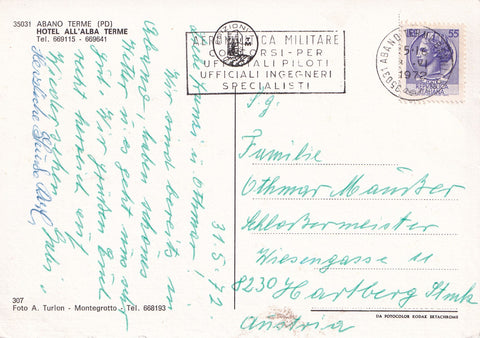 35031 ABANO TERME (PD)
HOTEL ALL'ALBA TERME
Tel. 669115 - 669641
AERONAUTICA MILITARE
CONCORSI-PER
UFFICIALI PILOTI
UFFICIALI INGEGNERI
SPECIALISTI
35031 ABANO
1972
55
31.5.72.
Othmar
Wir sind bereits in
Abano, haben schönes
Wetter u. es geht uns sehr
gut. Wir grüßen Euch
recht herzlich auf
Wiedersehen
Herzliche Grüße
Sg.
Familie
Othmar Mautzer
Schlossermeister
Wiesengasse 11
8230 Hartberg Stmk
Austria
307
Foto A. Turlon - Montegrotto - Tel. 668193
UA FOTOCOLOR KODAK EKTACHROME